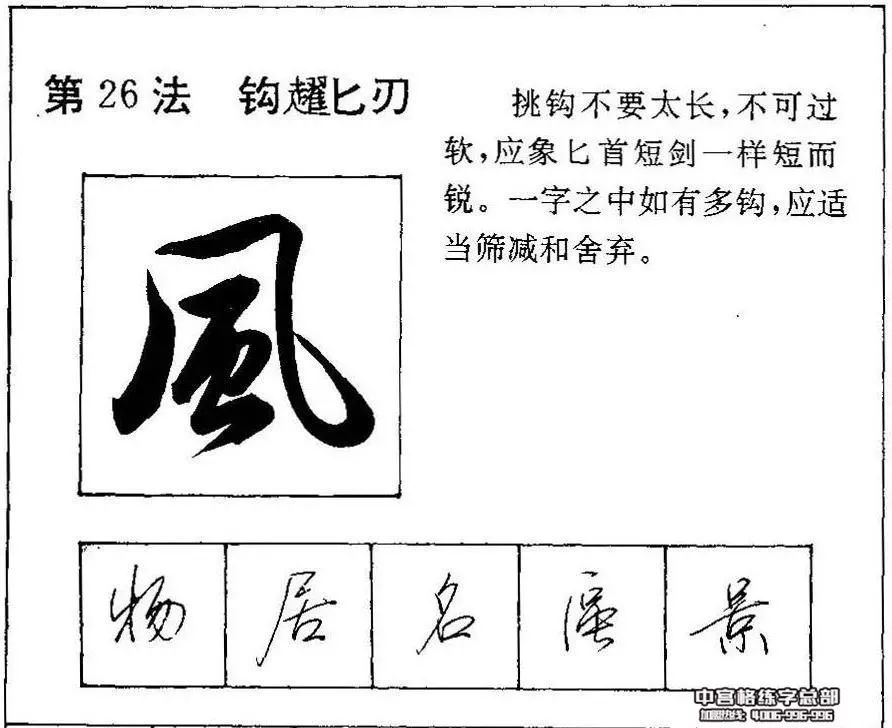 第26法 钩趯匕刃
挑钩不要太长,不可过
软,应象匕首短剑一样短而
锐。一字之中如有多钩,应适
当筛减和舍弃。
風
物 居 名 景
中宫格练字总部